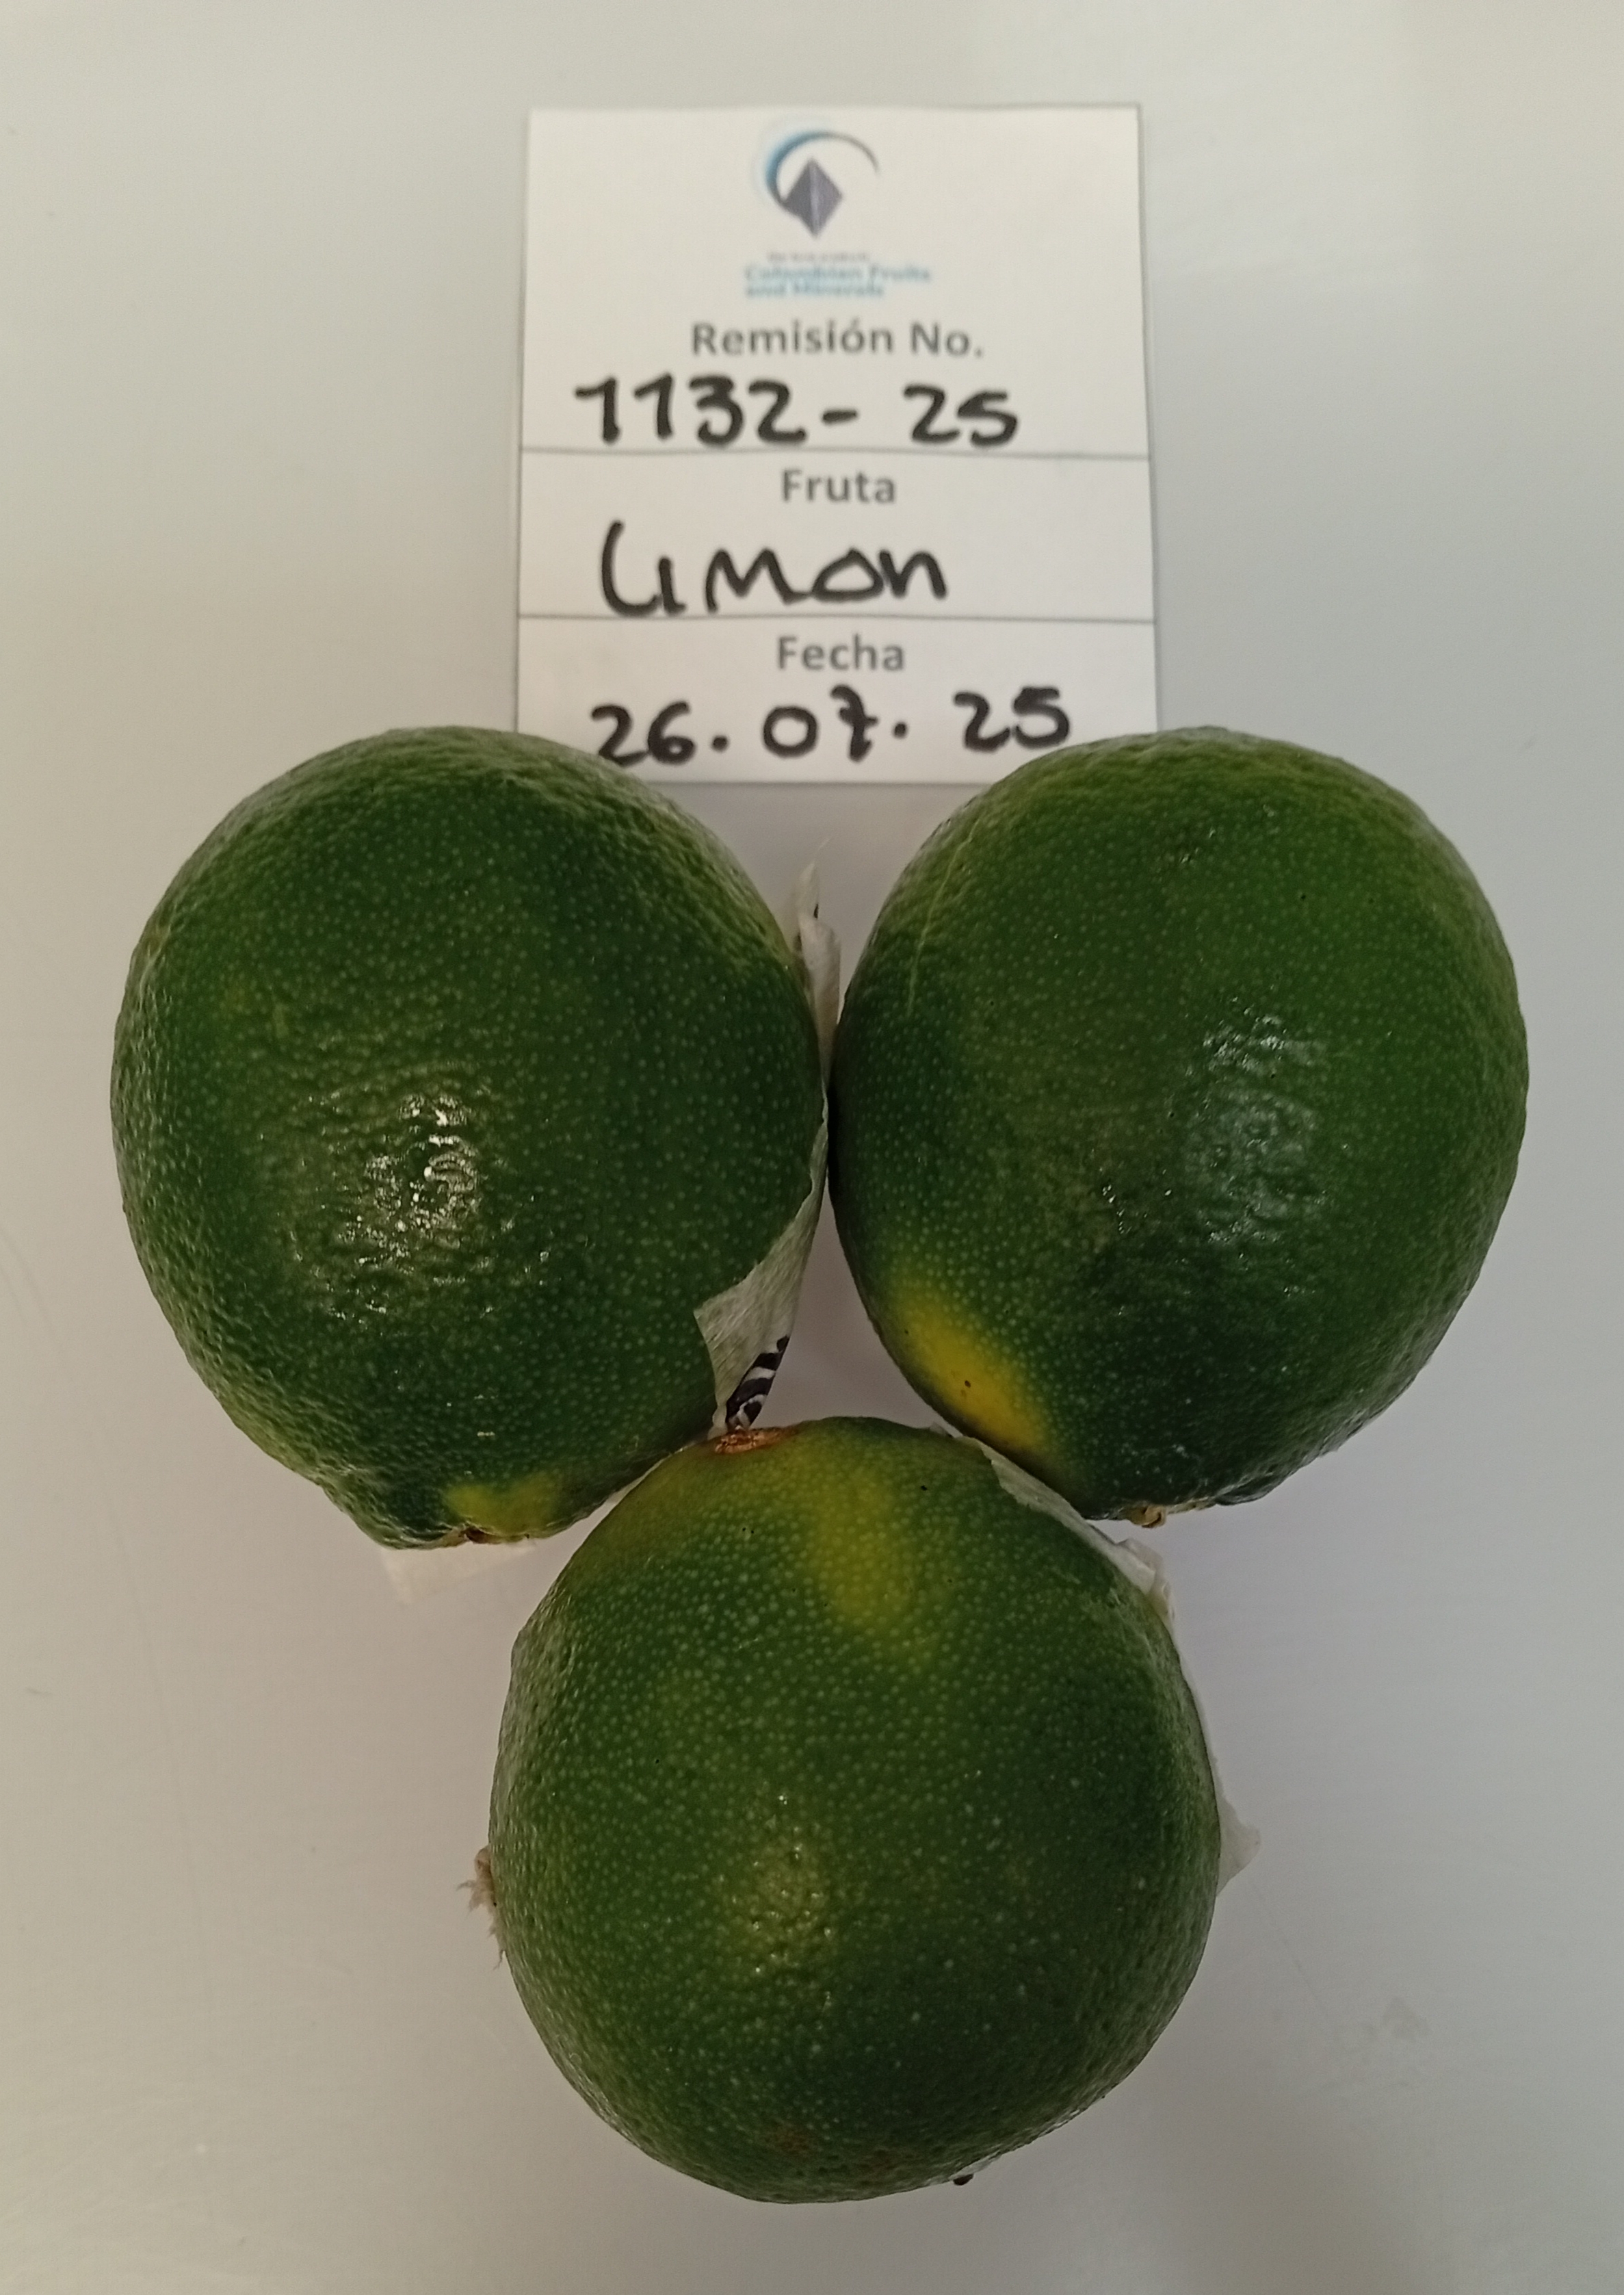 Colombian Fruits
and Minerals
Remisión No.
1132- 25
Fruta
Limon
Fecha
26.07.25